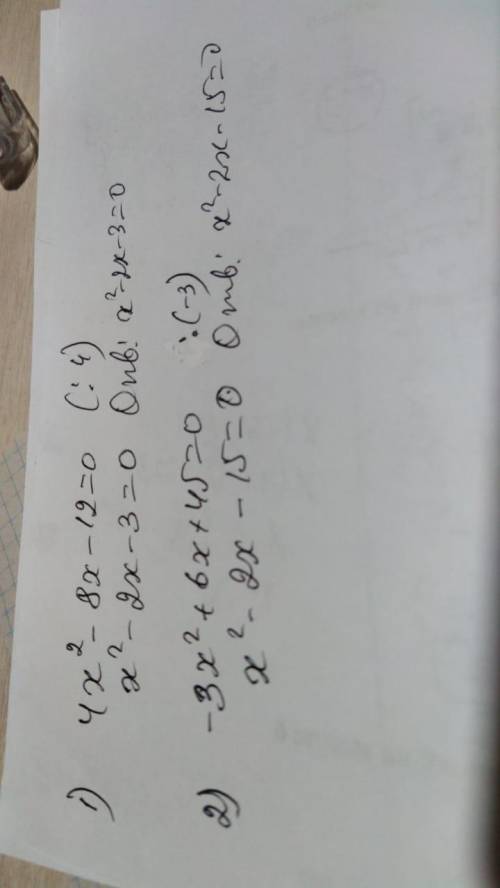 1) 4x² - 8x - 12 = 0 (: 4)
x² - 2x - 3 = 0 Отв: x² - 2x - 3 = 0
2) -3x² + 6x + 45 = 0 : (-3)
x² - 2x - 15 = 0 Отв: x² - 2x - 15 = 0